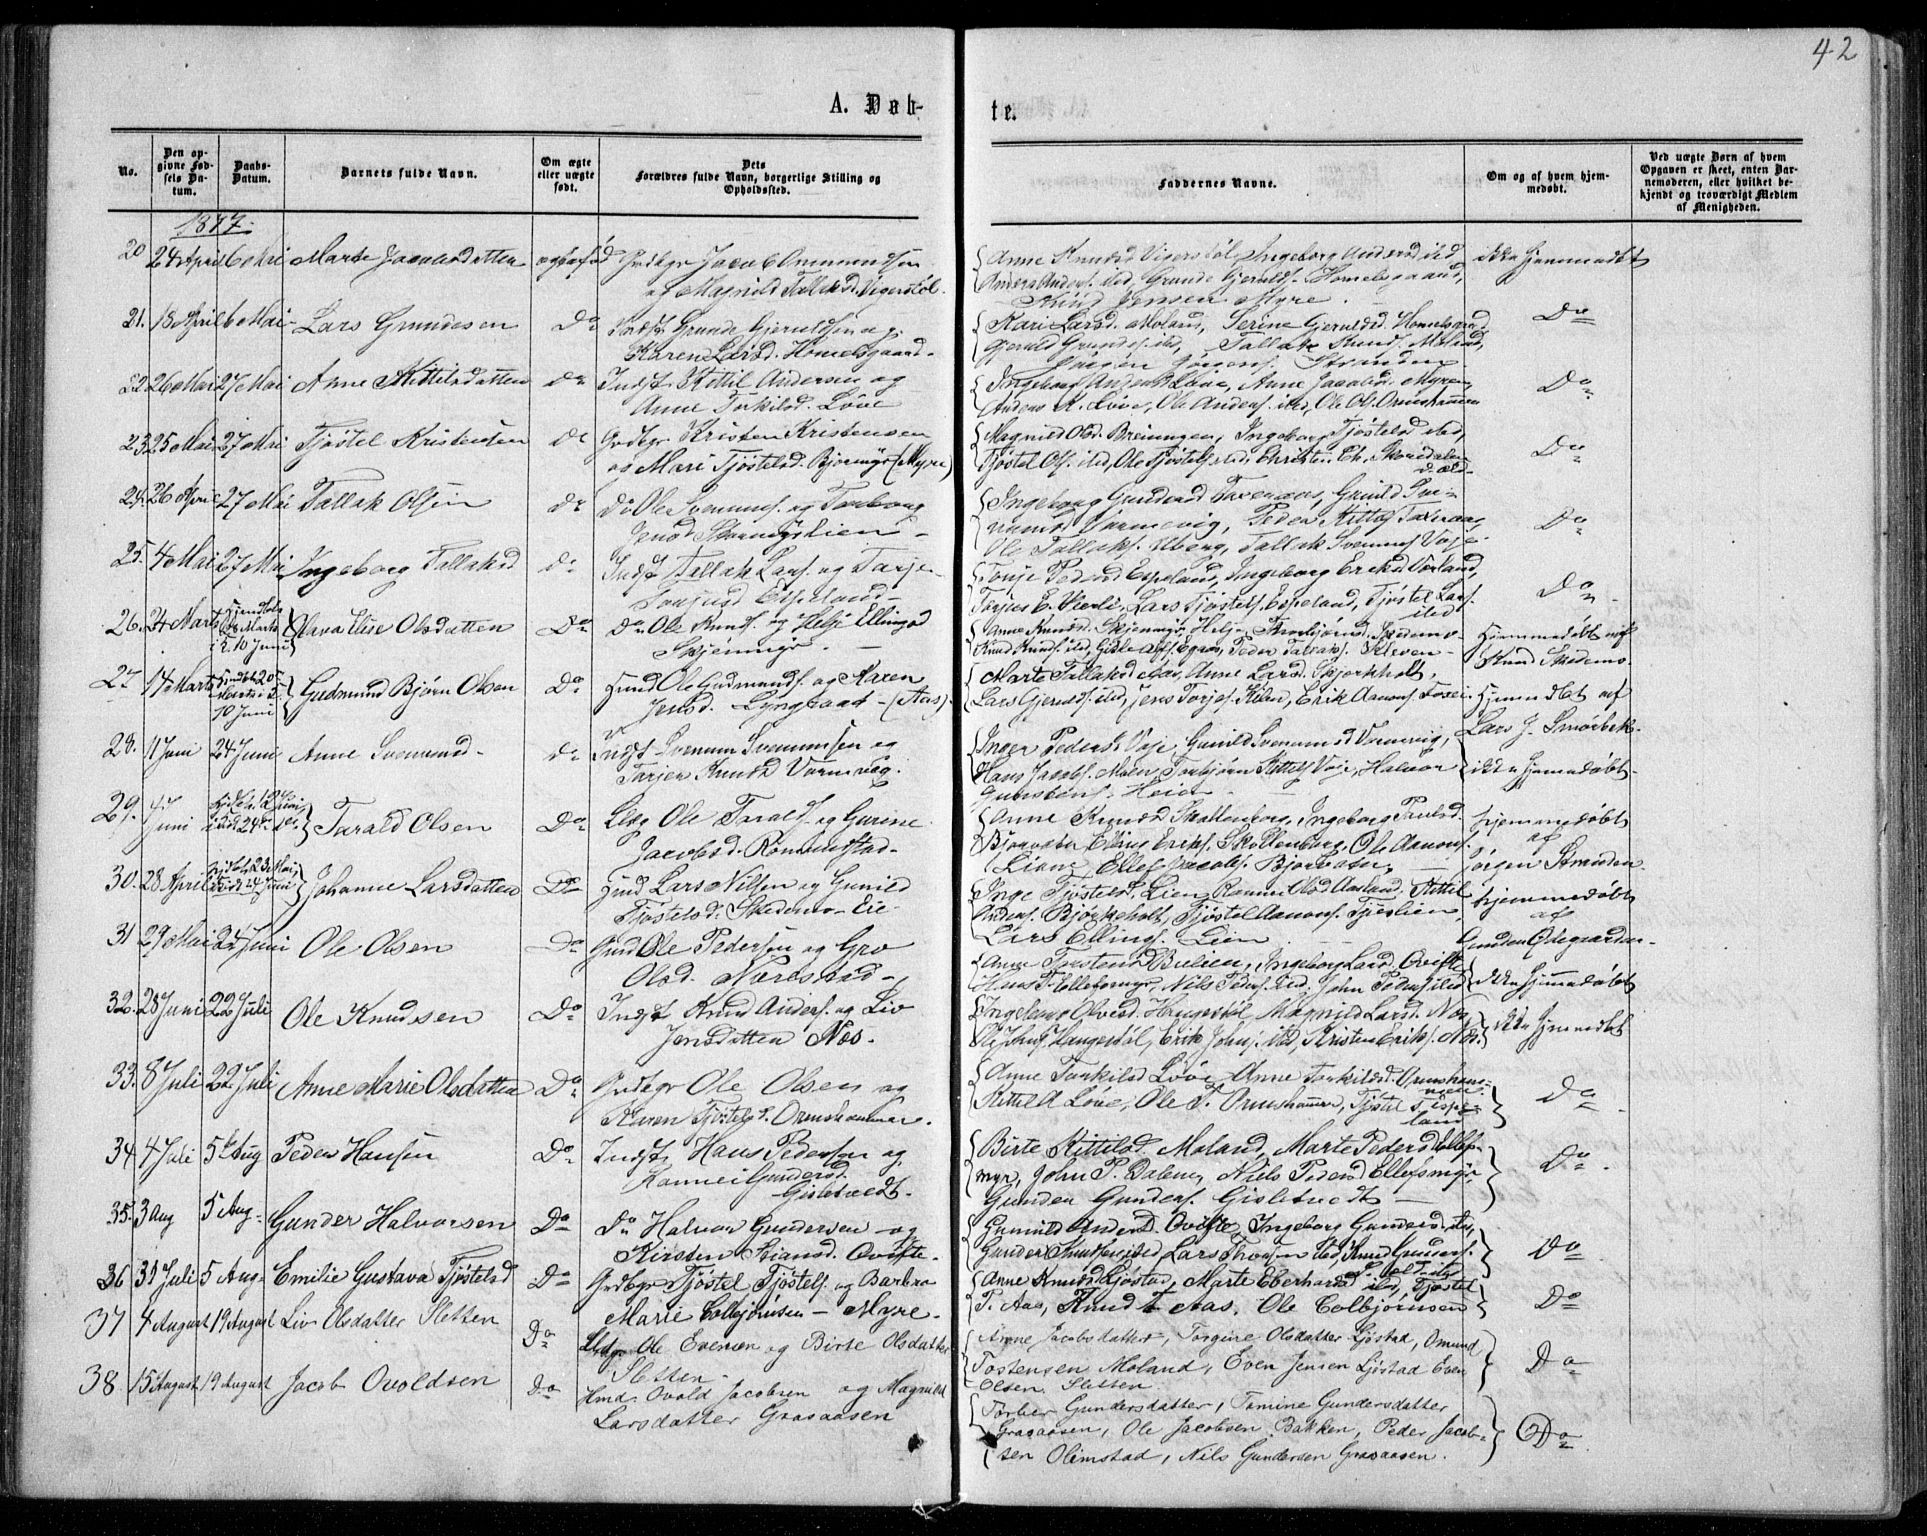 42
A. Døb-
te.
No.
Den op-
givne Fød-
sels Da-
tum.
Daabs-
Datum.
Barnets fulde Navn.
Om ægte
eller uægte
født.
Dets
Forældres fulde Navn, borgerlige Stilling og
Opholdssted.
Faddernes Navne.
Om og af hvem hjem-
medøbt.
Ved uægte Børn af hvem
Opgaven er skeet, enten Bar-
nemoderen, eller hvilket be-
kjendt og troværdigt Medlem
af Menigheden.
1877.
20 24 April 6 Mai Marte Jacobsdatten ægtefød Grdbgr Jacob Ommundsen
og Magnild Tallaksd. Vigerstøl.
Anne Knudsd Vigerstøl, Ingeborg Andersd ibd
Anders Anders. ibd, Grunde Gjeruldss. Homelsgaard,
Knud Jensen Myre.
ikke hjemmedøbt
21. 18 April 6 Mai Lars Grundesen Do
Grunde Gjeruldsen og
Karen Larsd. Homelsgaard.
Kari Larsd. Moland, Serine Gjeruldsd. Homelsgrd
Gjeruld Grundes. ibd, Tallak Knuds. Moland,
Jørgen Jørgens. Stranden
Do
22 26 Mai 27 Mai Anne Kittilsdatten do Indst Kittil Andersen og
Anne Torkilsd. Løve
Ingeborg Andersd Løve, Anne Jacobsd. Myren,
Anders K. Løve, Ole Anders. ibd, Ole Ols. Ormshammen
Do
23. 25 Mai 27 Mai Tjøstel Kristensen do Grdbgr Kristen Kristensen
og Mari Tjøstelsd. Bjormyr (Myre)
Magnild Olsd. Breiungen, Ingeborg Tjøstelsd ibd,
Tjøstel Ols. ibd, Ole Tjøstels. ibd,
Do
24. 26 April 27 Mai Tallak Olsen do Do Ole Svenums. og Torborg
Jensd
Ingeborg Gundersd Taxeraas, Gunild Sve-
numsd Vormevig, Peder Kittels Taxeraas,
Ole Tallaks. Uberg, Tallak Svenums Voje
Do
25. 4 Mai 27 Mai Ingeborg Tallaksd do Indst Tallak Lars. og Tarje
Torjusd Espeland
Tonje Pedersd Espeland, Ingeborg Eriksd Vorland,
Torjus E. Vierli, Lars Tjøstels. Espeland, Tjøstel Lars.
ibd
Do
26. 24 Marts Olava Elise Olsdatten Do do Ole Knuds. og Helje Ellingsd
Skjenmyr.
10 Juni
Anne Knudsd. Skjenmyr, Helje Thorbjørnsd. Skedemo
Knud Knuds. ibd, Gisle Alfs. Egaas, Peder Tallaks. Kleven
Hjemmedøbt af
Knud Skedemo
27 14 Marts Gudmund Bjørn Olsen Do Hmd Ole Gudmunds. og Karen
Jensd. Lyngraat (Aas).
10 Juni
Marte Tallaksd Aas, Anne Larsd. Skjorkholt,
Lars Gjerulds. ibd, Jens Torjes. Kilen, Erik Aanons. Fosei.
Hjemmedøbt af
Lars J. Smørbek
28. 11 Juni 24 Juni Anne Svenumsd do Indst Svenum Svenumsen og
Tarjer Knudsd Vormevig.
Inger Pedersd Voje, Gunild Svenumsd Vormevig,
Hans Jacobs. Moen, Torbjørn Kittels Voje, Halvor
Gunstens. Heia
ikke hjemmedøbt
29. 4 Juni Tarald Olsen Do Ole Taralds. og Gurine
Jacobsd. Romundstad
Anne Knudsd Skallenborg, Ingeborg Paulsd.
Elling Eriks. Skallenborg, Ole Aanons.
Liane, Ellef Jacobs.
hjemmedøbt
af
Jørgen Stranden
30. 28 April Johanne Larsdatten Do Hmd Lars Nilsen og Gunild
Tjøstelsd. Skedemo Eie
24 Juni
Inge Tjøstelsd. Lien, Olsd Aasland, Kittil
Anders. Bjørkeholt, Tjøstel Aanons. Tjøslien,
Lars Ellings. Lien
hjemmedøbt
af
Gunden Ødegaarden
31 29 Mai 24 Juni Ole Olsen Do Ole Pedersen og Gro
Olsd. Næresstad
Anne Torstensd Bulien, Ingeborg Larsd. Ovifte
Hans T. Ellefsmyr, Nils Peders. ibd, John Peders. ibd
ikke hjemmedøbt
32. 28 Juni 22 Juli Ole Knudsen Do Indst Knud Anders. og Liv
Jensdatten Næs.
Ingeborg Olvesd. Haugestøl, Magnild Larsd. Næs
Ole Johns. Haugestøl, Erik Johns. ibd, Kristen Eriks. Næs.
ikke hjemmedøbt
33. 8 Juli 22 Juli Anne Marie Olsdatten Do Grdbgr Ole Olsen og
Karen Tjøstelsd. Ormshammer.
Anne Torkilsd Løve, Anne Torkildsd. Ormsham-
men
Kittil A Løve, Ole T. Ormshammer, Tjøstel T. Espe-
land
Do
34 4 Juli 5te Aug Peder Hansen Do Indst Hans Pedersen og
Gundersd.
Gisletvedt.
Birte Kittelsd. Moland, Marte Pedersd Ellefs-
myr, John P. Dalene, Niels Pedersd Ellefsmyr
Gunden Gunders. Gisletvedt
Do
35. 3 Aug 5 Aug Gunder Halvorsen Do Do Halvor Gundersen og
Kirsten Stiansd. Ovifte
Gunnild Andersd. Ovifte, Ingeborg Gundersd. ibd,
Gunder Knuds. ibd, Lars Thorsen ibd, Knud Gunders.
Do
36 31 Juli 5 Aug Emilie Gustava Tjøstelsd Do Grdbgr Tjøstel Tjøstels. og Barbro
Marie Colbjørnsen Myre.
Anne Knudsd Ljøstad, Marte Eberhardsd ibd, Tjøstel
T. Aas, Knud T Aas. Ole Colbjørnsen
Do
37 4 August 19 August Liv Olsdatter Sletten Do Ole Evensen og Birte Olsdatter
Sletten
Anne Jacobsdatter, Torgine Olsdatter Ljøstad, Omund
Tostensen Moland, Even Jensen Ljøstad Even
Olsen Sletten
Do
38 15 August 19 August Jacob Ovoldsen Do Hmd Ovold Jacobsen og Magnild
Larsdatter Graaaasen
Torber Gundersdatter, Tomine Gundersdatter
Graaaasen, Ole Jacobsen Bakken, Peder Jacob-
sen Olimstad, Nils Gundersen Graaaasen.
Do